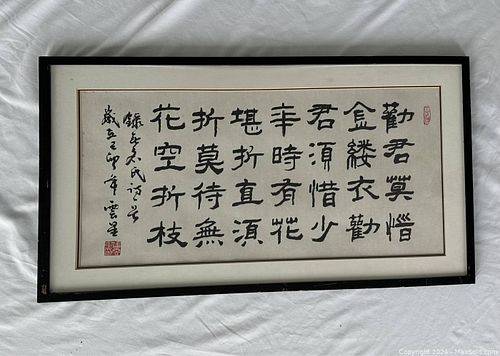 勸君莫惜
金縷衣勸
君須惜少
年時有花
堪折直須
折莫待無
花空折枝
錄無名氏詩一首
歲在 卯年雲
Copyright 2024 - MaxSold.com